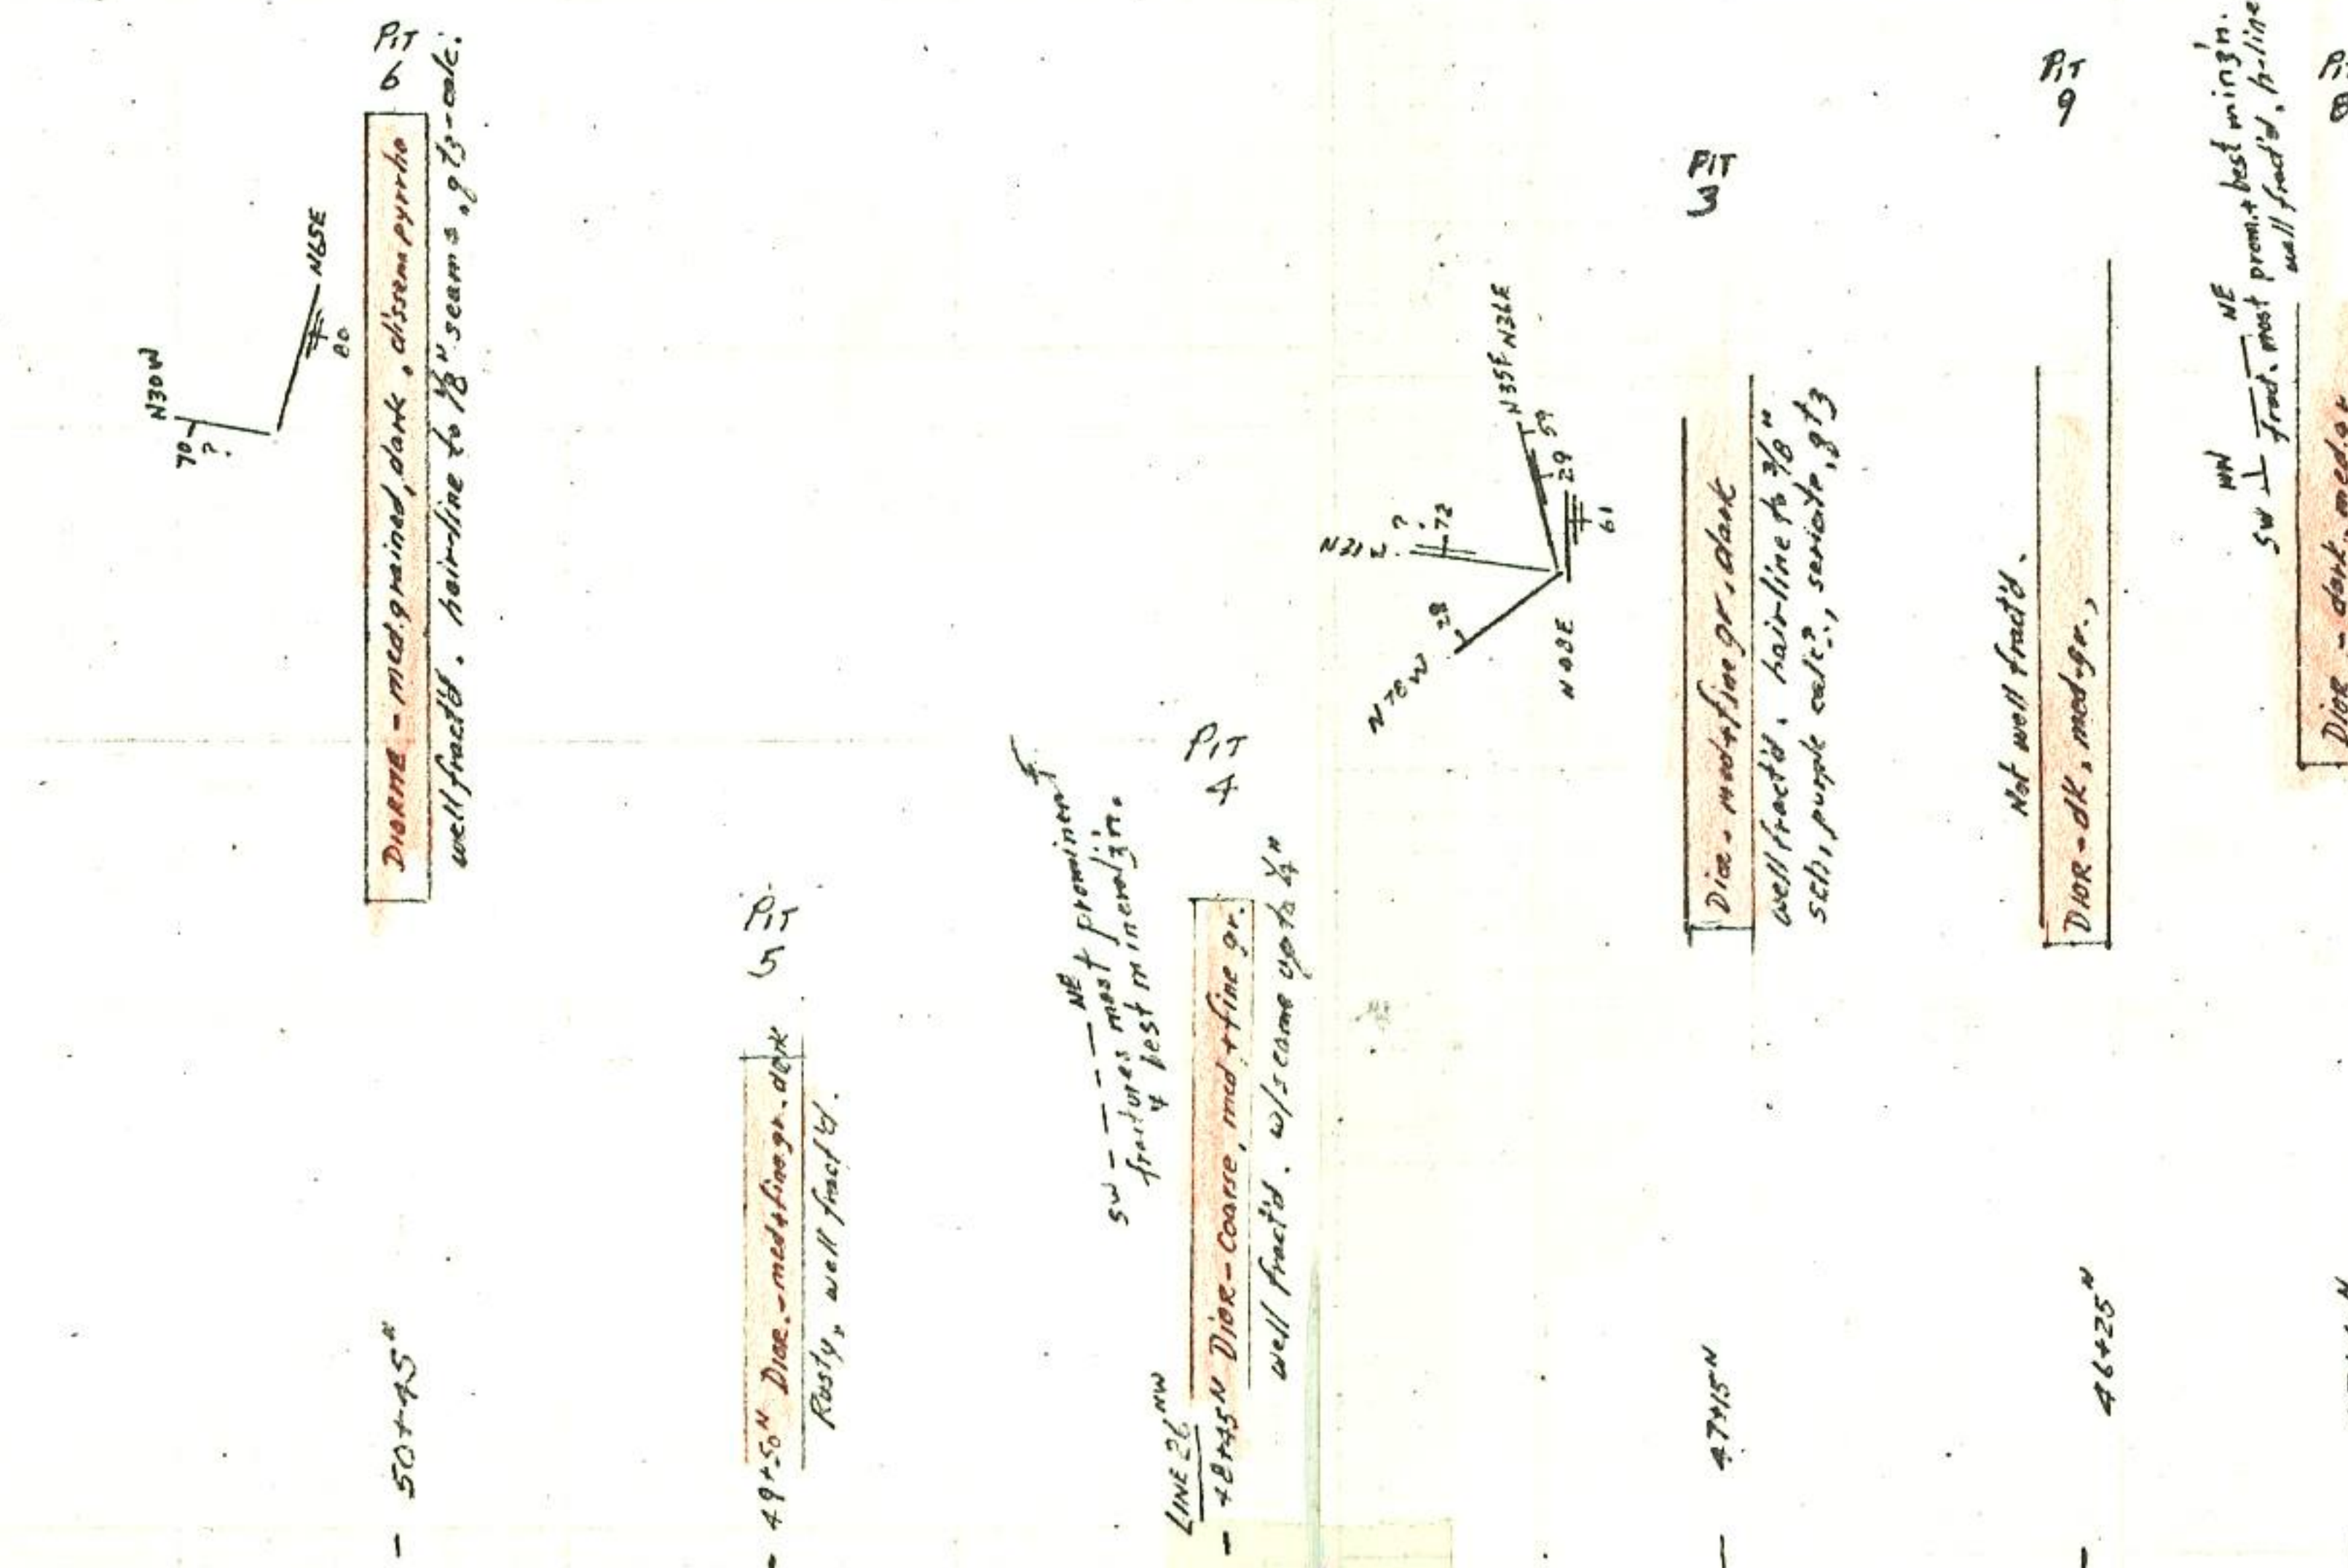 PIT
6
N30W
70
?
N65E
80
DIORITE - med. grained, dark. dissem pyrrho
well fract'd. hair-line to 1/8" seams, qtz-calc.
- 50+45N
PIT
5
- 49+50N DIOR. - med+fine gr. dark
Rusty, well fract'd.
SW - - - - NE
fractures most prominent
+ best mineralz'n.
PIT
4
LINE 26NW
- 48+45N DIOR - coarse, med+fine gr.
well fract'd. w/seams up to 1/4"
PIT
3
N78W
28
?
72
N35E N36E
59
29
61
N08E
DIOR. med+fine gr, dark
well fract'd. hair-line to 3/8"
sch, purple calc?, sericite, qtz
- 47+15N
PIT
9
Not well fract'd.
DIOR - dk, med-gr.,
- 46+25N
NW
SW NE
fract. most prom.+ best minz'n.
well fract'd, h-line
DIOR - dark, med.gr